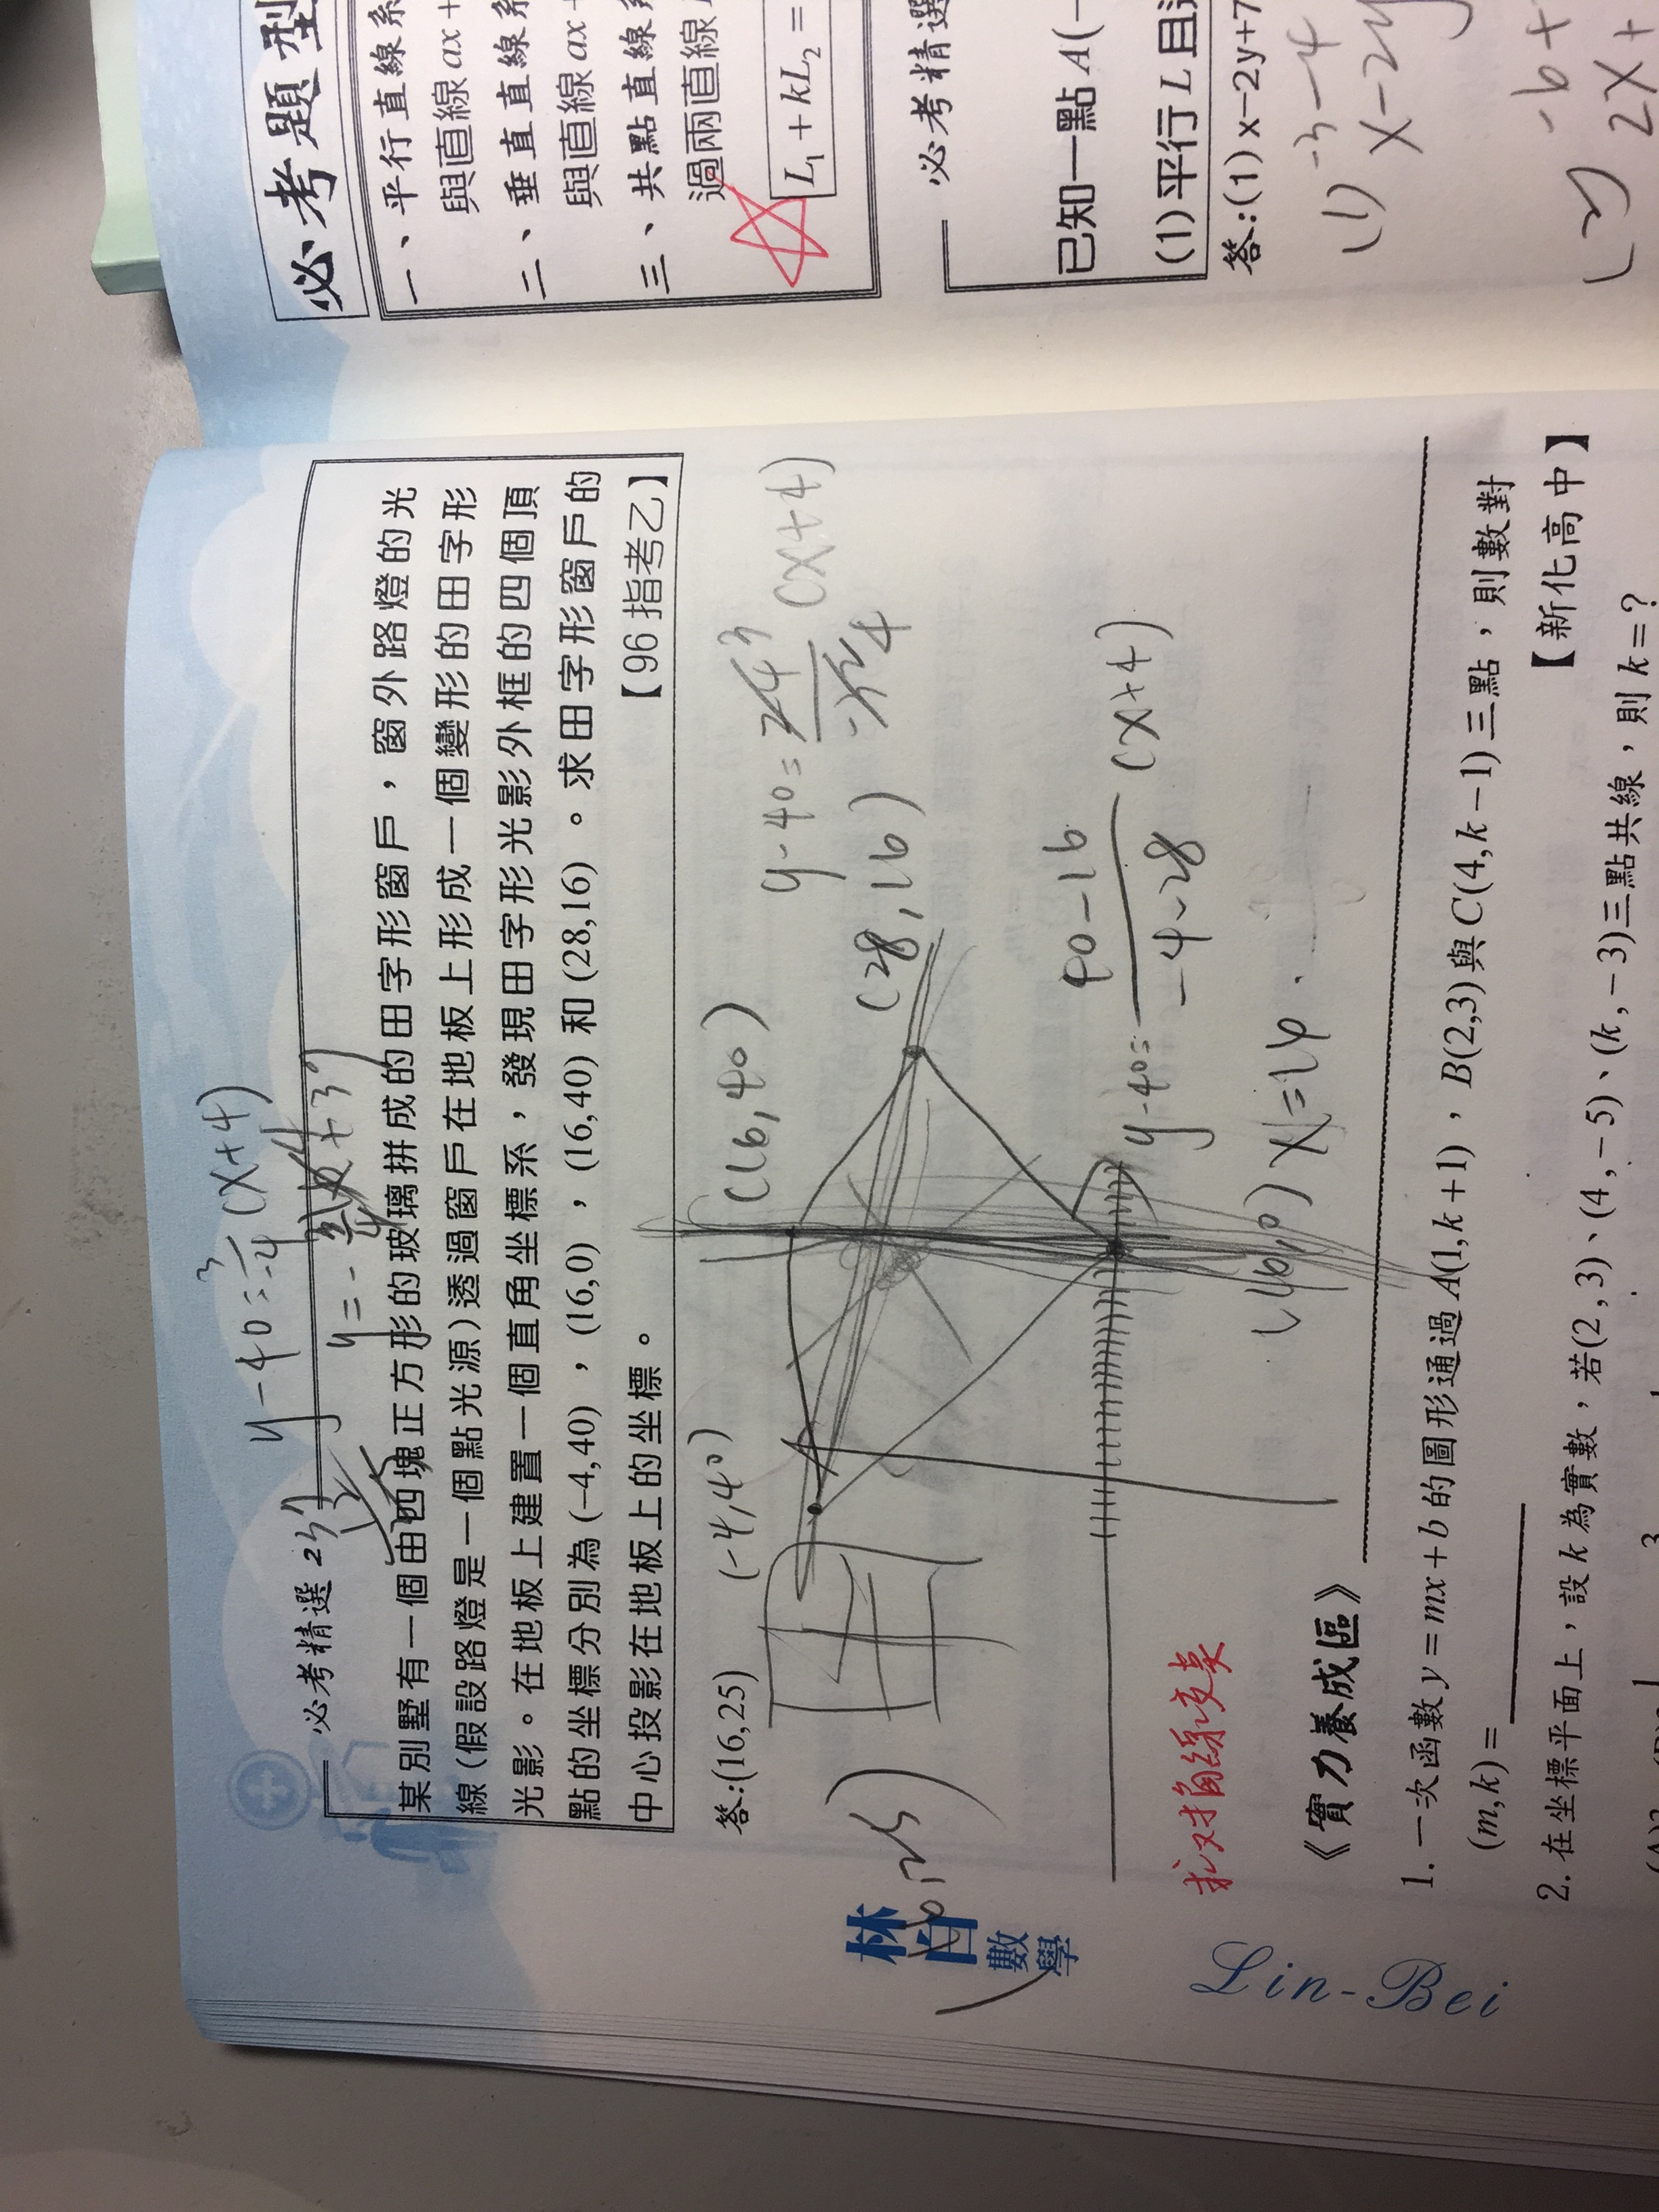 必考精選 239
y-40=3/-4(x+4)
y=-
某別墅有一個由四塊正方形的玻璃拼成的田字形窗戶，窗外路燈的光
線(假設路燈是一個點光源)透過窗戶在地板上形成一個變形的田字形
光影。在地板上建置一個直角坐標系，發現田字形光影外框的四個頂
點的坐標分別為(-4,40)，(16,0)，(16,40)和(28,16)。求田字形窗戶的
中心投影在地板上的坐標。
【96指考乙】
答:(16,25)
(-4,40)
(16,40)
y-40=
(x+4)
(28,16)
(16,25)
y-40=40-16/-4-28(x+4)
(16,0)
x=16
求对角線交点
林白
數學
Lin-Bei
《實力養成區》
1. 一次函數y=mx+b的圖形通過A(1,k+1)，B(2,3)與C(4,k-1)三點，則數對
(m,k)=
【新化高中】
2. 在坐標平面上，設k為實數，若(2,3)、(4,-5)、(k,-3)三點共線，則k=?
必考題型
一、平行直線系
與直線ax+
二、垂直直線系
與直線ax+
三、共點直線系
過兩直線
L₁+kL₂=
必考精選
已知一點A(-
(1)平行L且
答:(1)x-2y+7
(1) -3-4
x-2y
(2) -6+
2x+